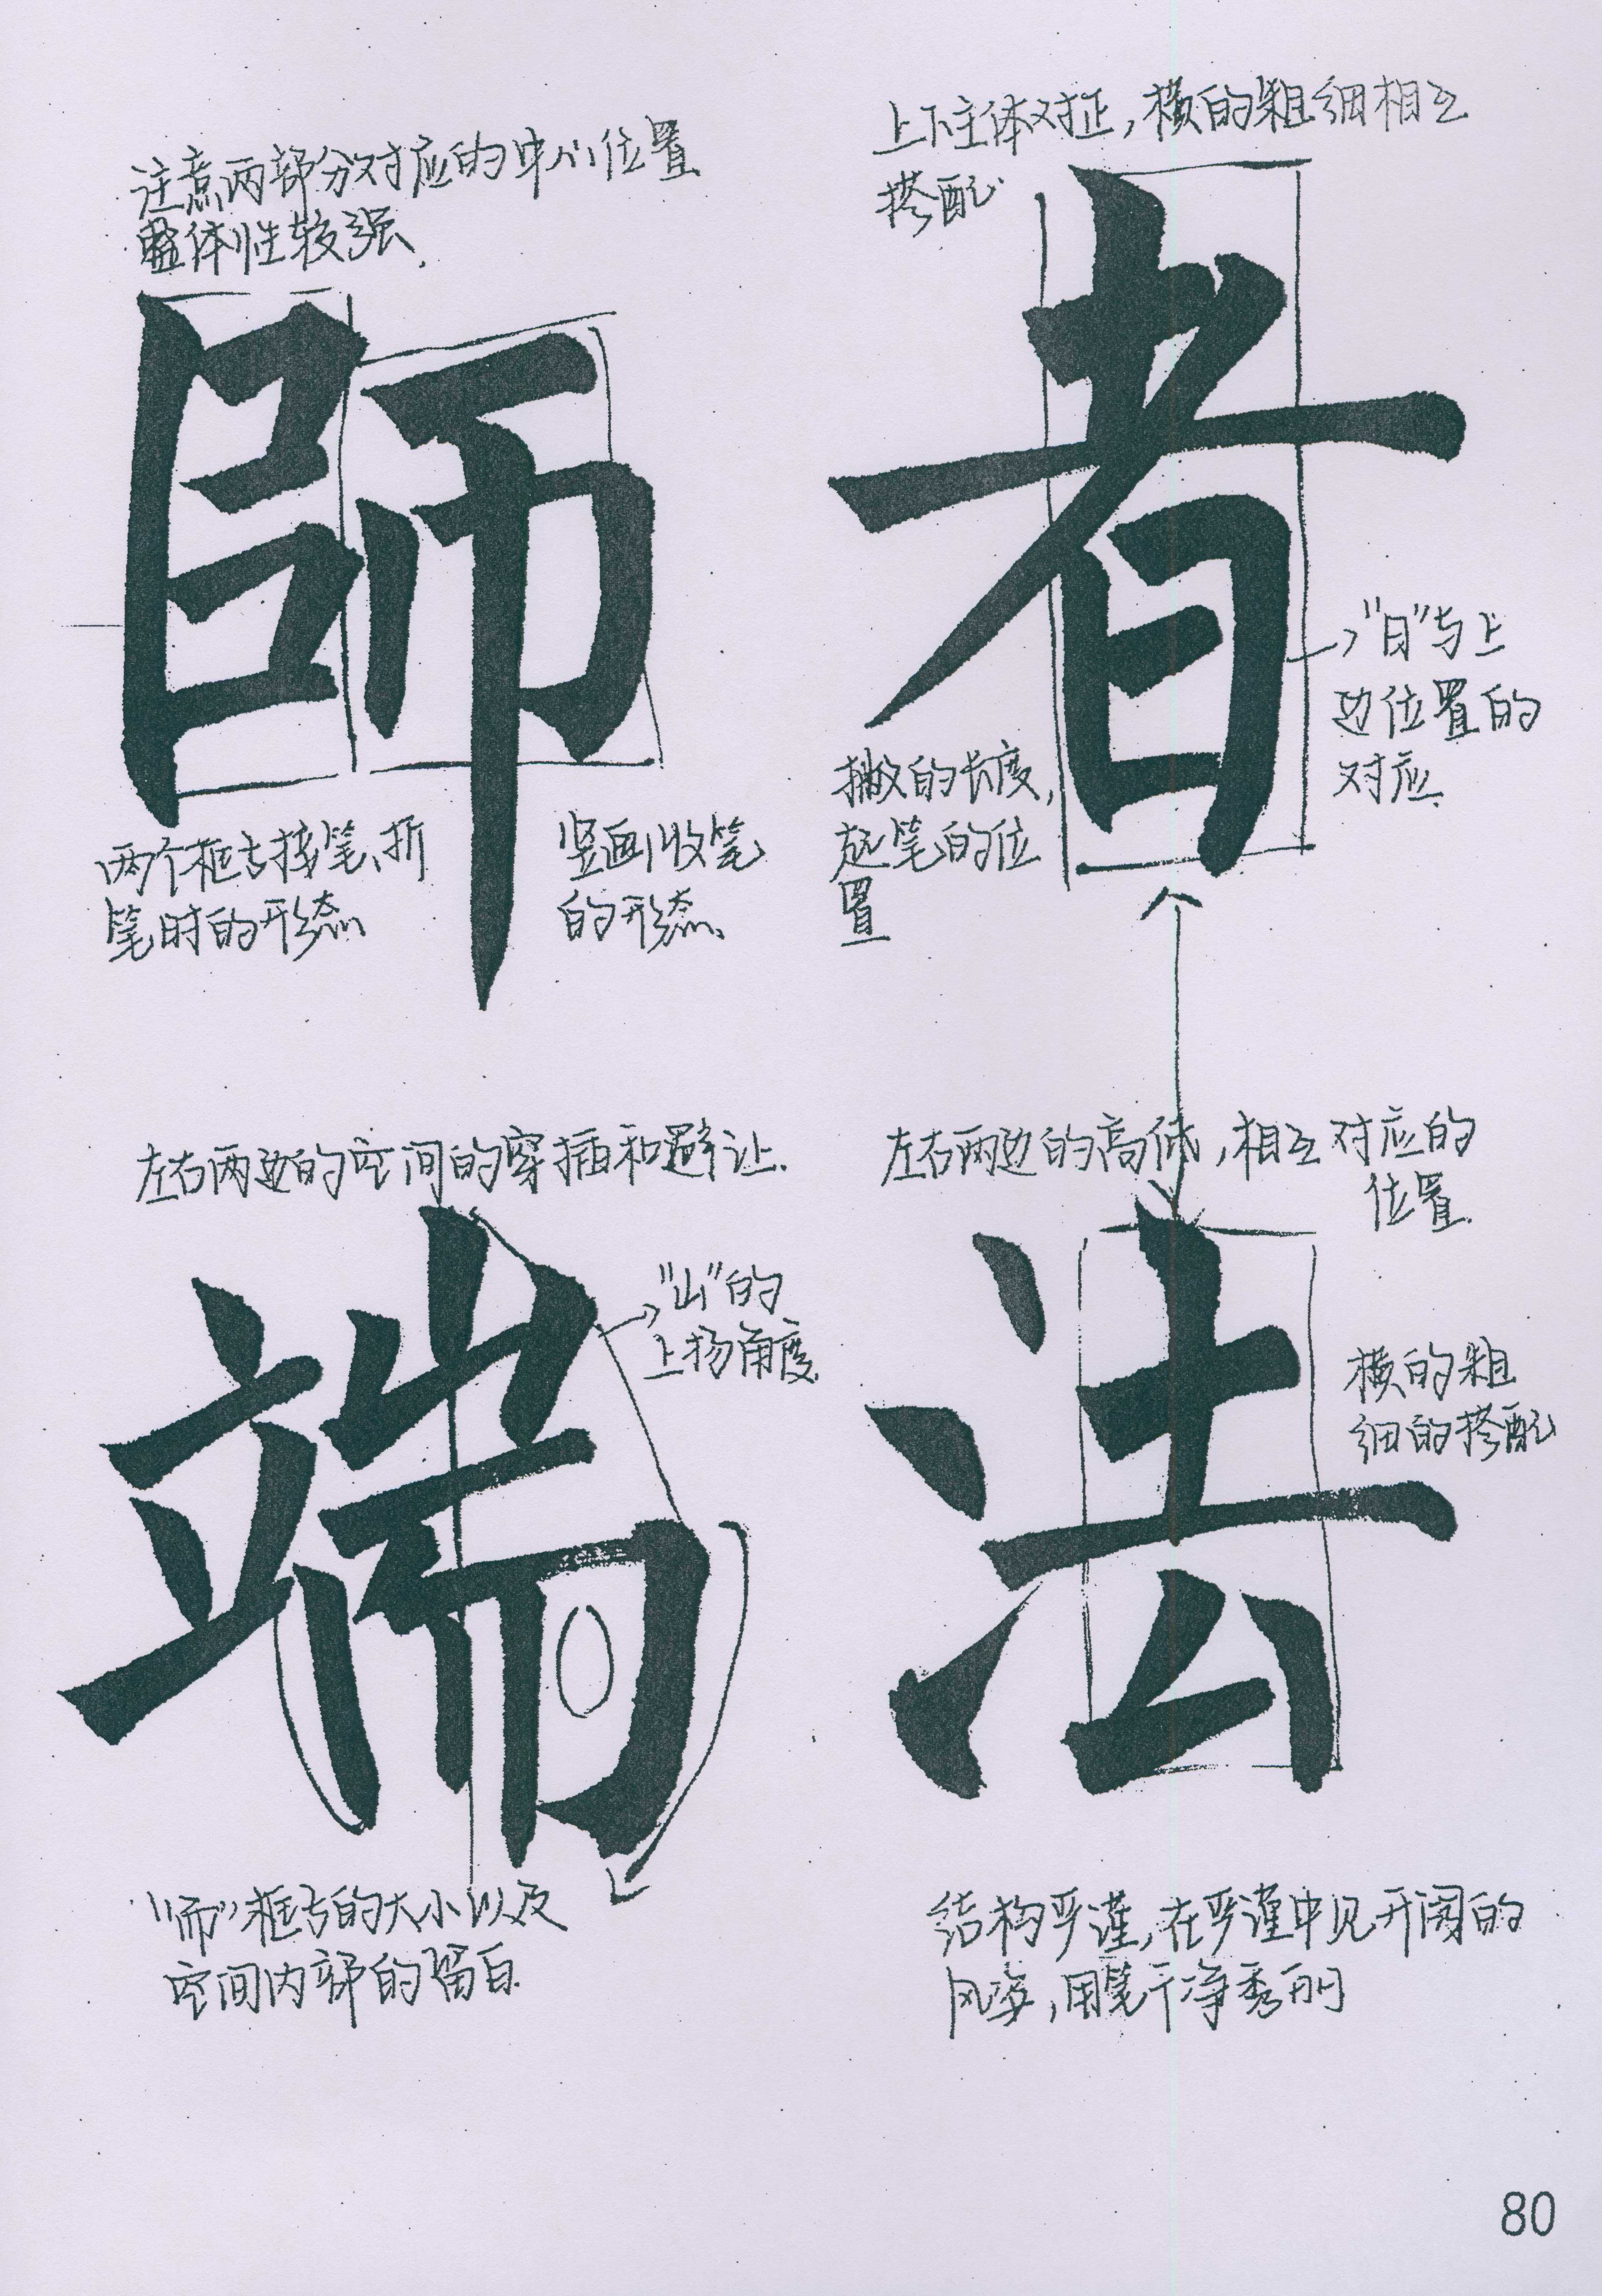 注意两部分对应的中心位置
整体性较强、
師
两个框与接笔、折
笔时的形态
竖画收笔
的形态、
上下主体对正，横的粗细相互
搭配
者
"日"与上
边位置的
对应、
撇的长度，
起笔的位
置
左右两边的空间的穿插和避让.
端
"山"的
上扬角度.
"而"框与的大小以及
空间内部的留白.
左右两边的高低，相互对应的
位置.
法
横的粗
细的搭配
结构严谨，在严谨中见开阔的
风姿，用笔干净秀丽
80